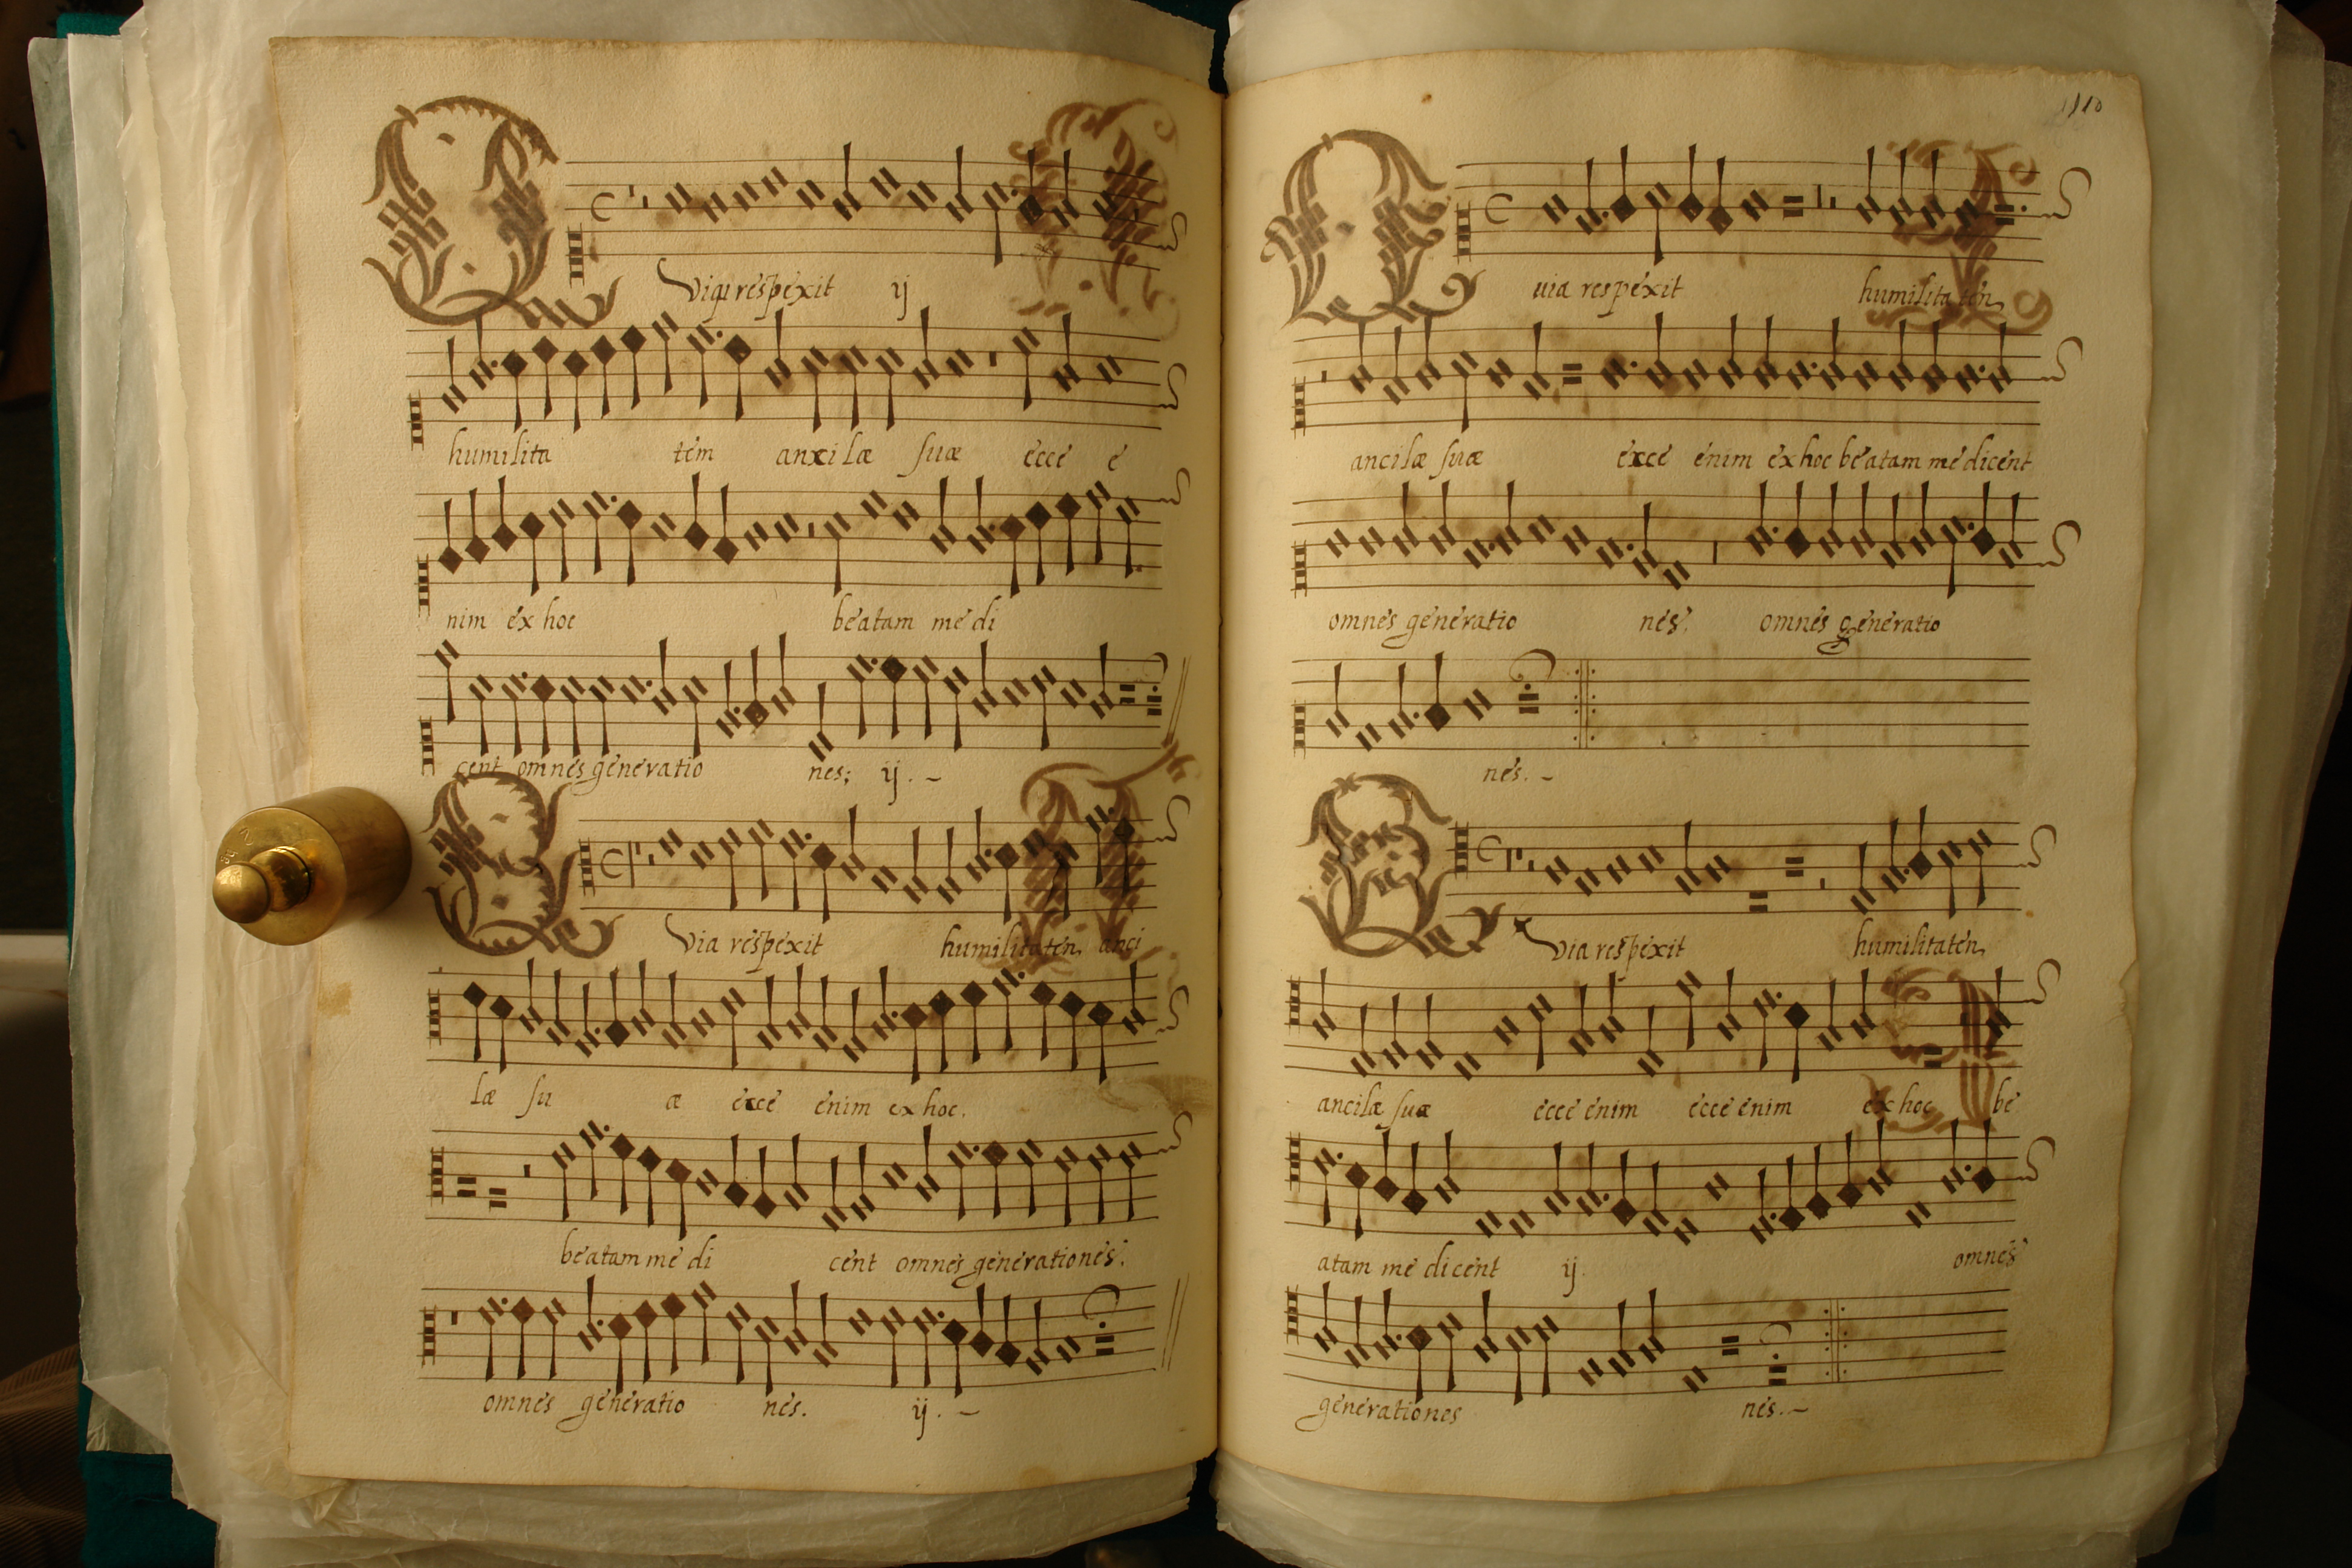 Quia respexit ij
humilita tem anxilæ suæ ecce e
nim ex hoc beatam me di
cent omnes generatio nes; ij. ~
Quia respexit humilitaten anci
læ su æ ecce enim ex hoc.
beatam me di cent omnes generationes.
omnes generatio nes. ij. ~
110
Quia respexit humilita ten
ancilæ suæ exce enim ex hoc beatam me dicent
omnes generatio nes. omnes generatio
nes. ~
Quia respexit humilitaten
ancilæ suæ ecce enim ecce enim ex hoc be
atam me dicent ij. omnes
generationes nes. ~